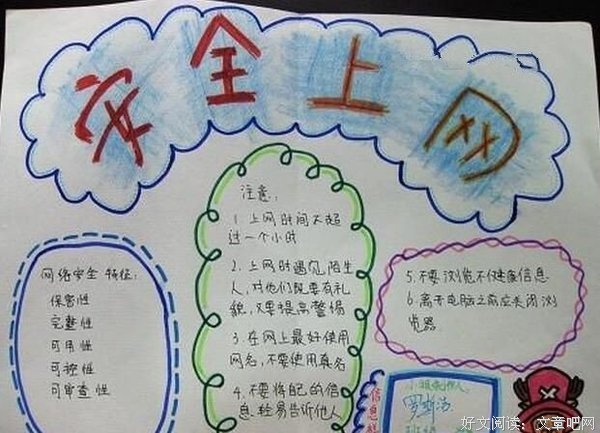 安全上网
网络安全 特征:
保密性
完整性
可用性
可控性
可审查性
注意:
1. 上网时间不超
过一个小时
2. 上网时遇见陌生
人,对他们既要有礼
貌,又要提高警惕
3. 在网上最好使用
网名,不要使用真名
4. 不要将自己的信
息轻易告诉他人
5.不要浏览不健康信息
6.离开电脑之前应关闭浏
览器
信息
小报制作人:
班级
好文阅读:文章吧网